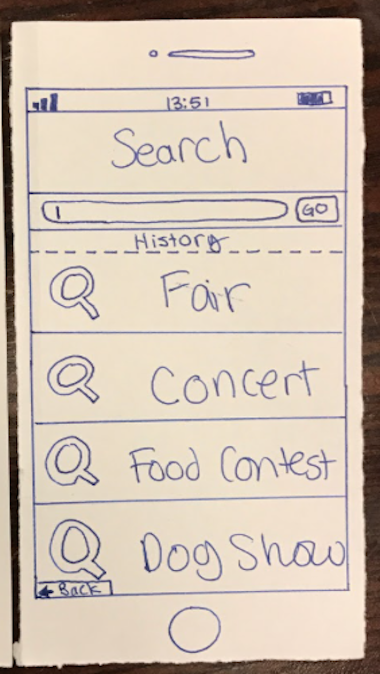 13:51
Search
GO
History
Fair
Concert
Food Contest
Dog Show
Back